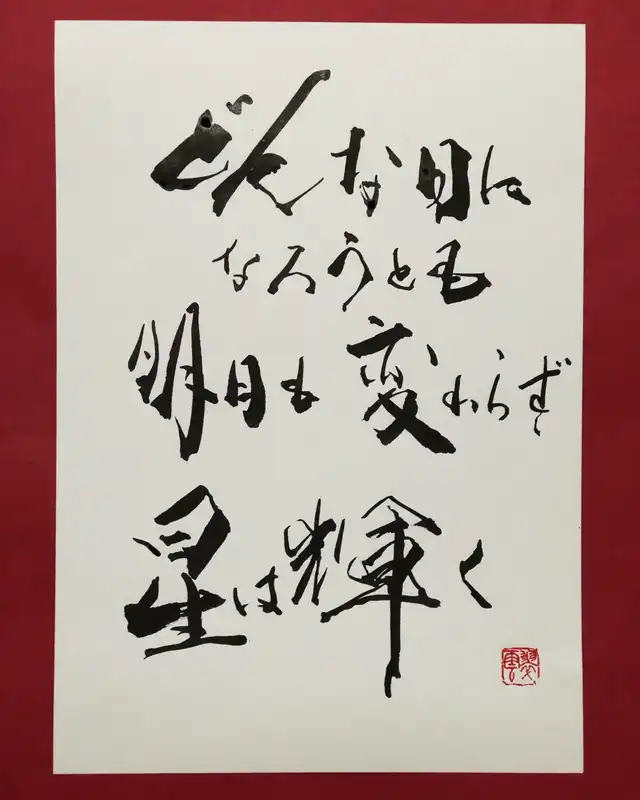 どんな日に
なろうとも
明日も変わらず
星は輝く